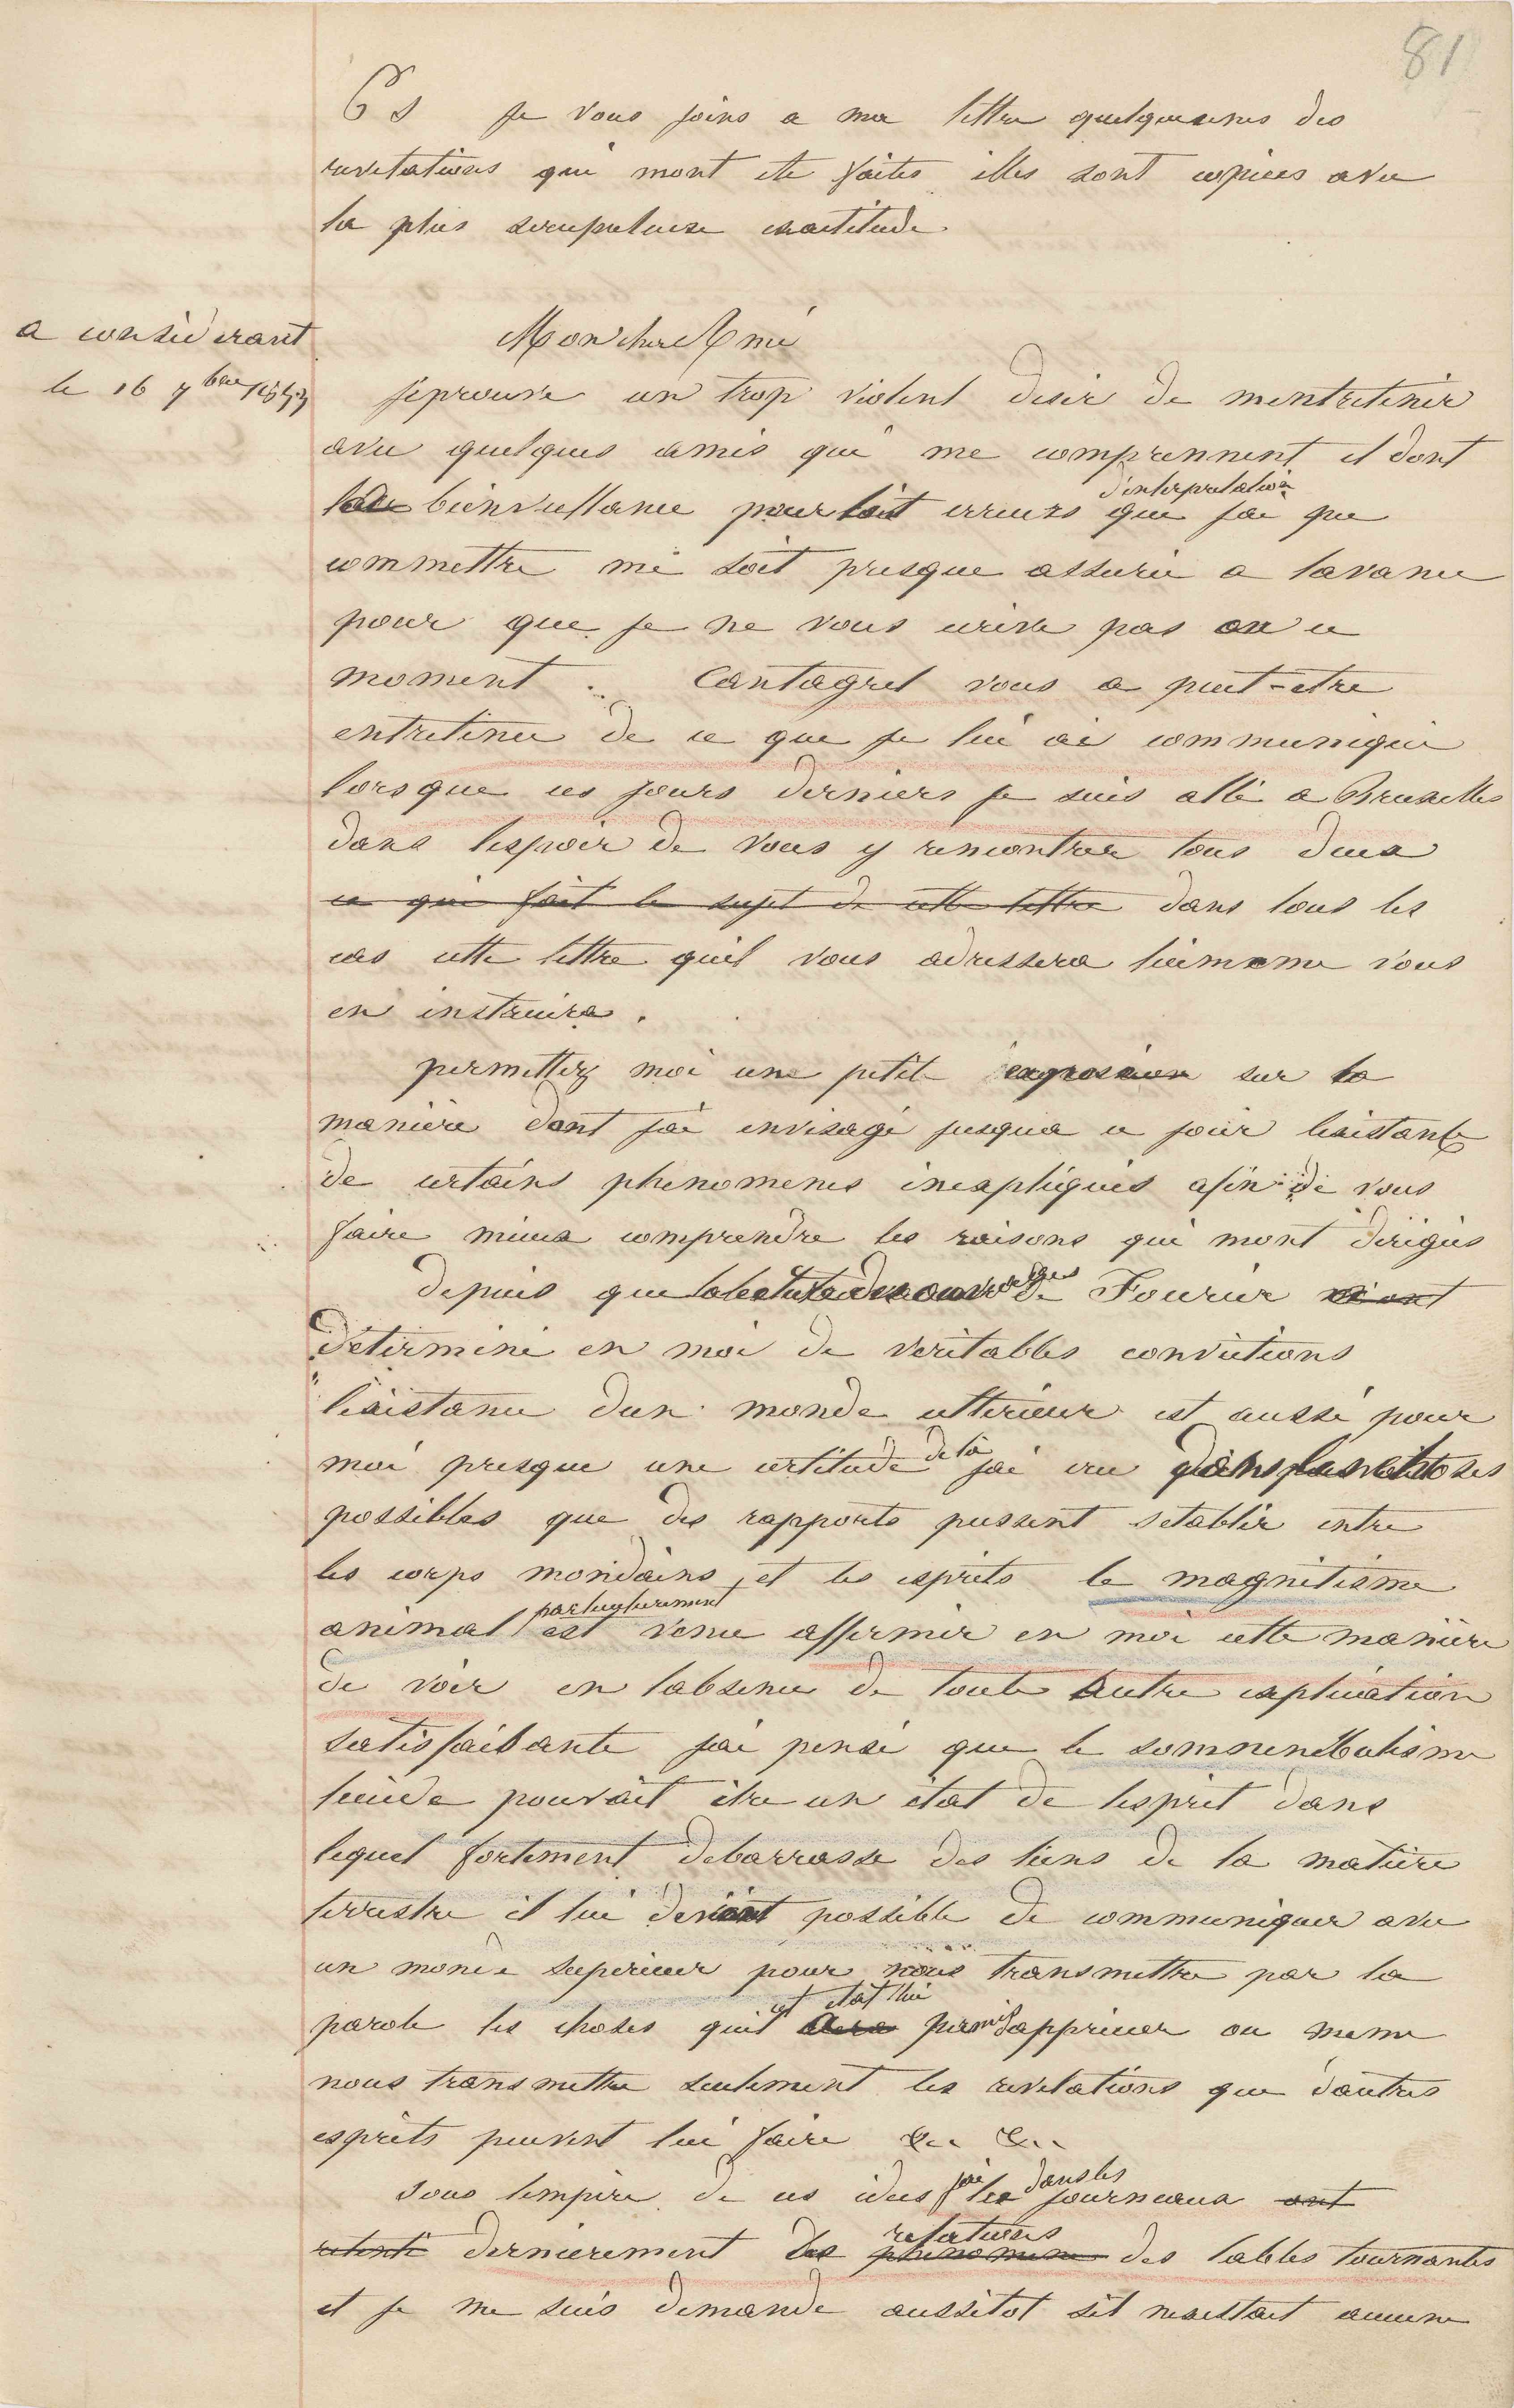 81
P S je vous joins a ma lettre quelques unes des
revelations qui mont ete faites elles sont copiees avec
la plus scrupuleuse exactitude
a considerant
le 16 7bre 1853
Mon cher Ami
jeprouve un trop violent desir de mentretenir
avec quelques amis qui me comprennent et dont
la bienveillance pour les erreurs d'interpretation que jai pu
commettre me soit presque assuree a lavance
pour que je ne vous ecrive pas en ce
moment. Cantagrel vous a peut-etre
entretenu de ce que je lui ai communiqué
lorsque ces jours derniers je suis allé a Bruxelles
dans lespoir de vous y rencontrer tous deux
ce qui fait le sujet de cette lettre dans tous les
cas cette lettre quil vous adressera luimeme vous
en instruira.
permettez moi une petite sur la
maniere dont jai envisagé jusqua ce jour lexistance
de certains phenomenes inexpliqués afin de vous
faire mieux comprendre les raisons qui mont dirigés
depuis que la lecture des ouvrages de Fourier ont
determiné en moi de veritables convictions
lexistance dun monde ulterieur est aussi pour
moi presque une certitude de la jai cru choses
possibles que des rapports pussent setablir entre
les corps mondains, et les esprits le magnetisme
animal particulierement est venu affermir en moi cette maniere
de voir en labsence de toute autre explication
satisfaisante jai pensé que le somnenbulisme
lucide pouvait etre un etat de lesprit dans
lequel fortement debarrassé des liens de la matiere
terrestre il lui devient possible de communiquer avec
un monde superieur pour nous transmettre par la
parole les choses quil cet etat lui permis dapprecier ou meme
nous transmettre seulement les revelations que dautres
esprits peuvent lui faire &c &c
sous lempire de ces idees jai lu dans les journeaux ont
retenti dernierement des relations phenomene des tables tournantes
et je me suis demandé aussitot sil nexistait aucune